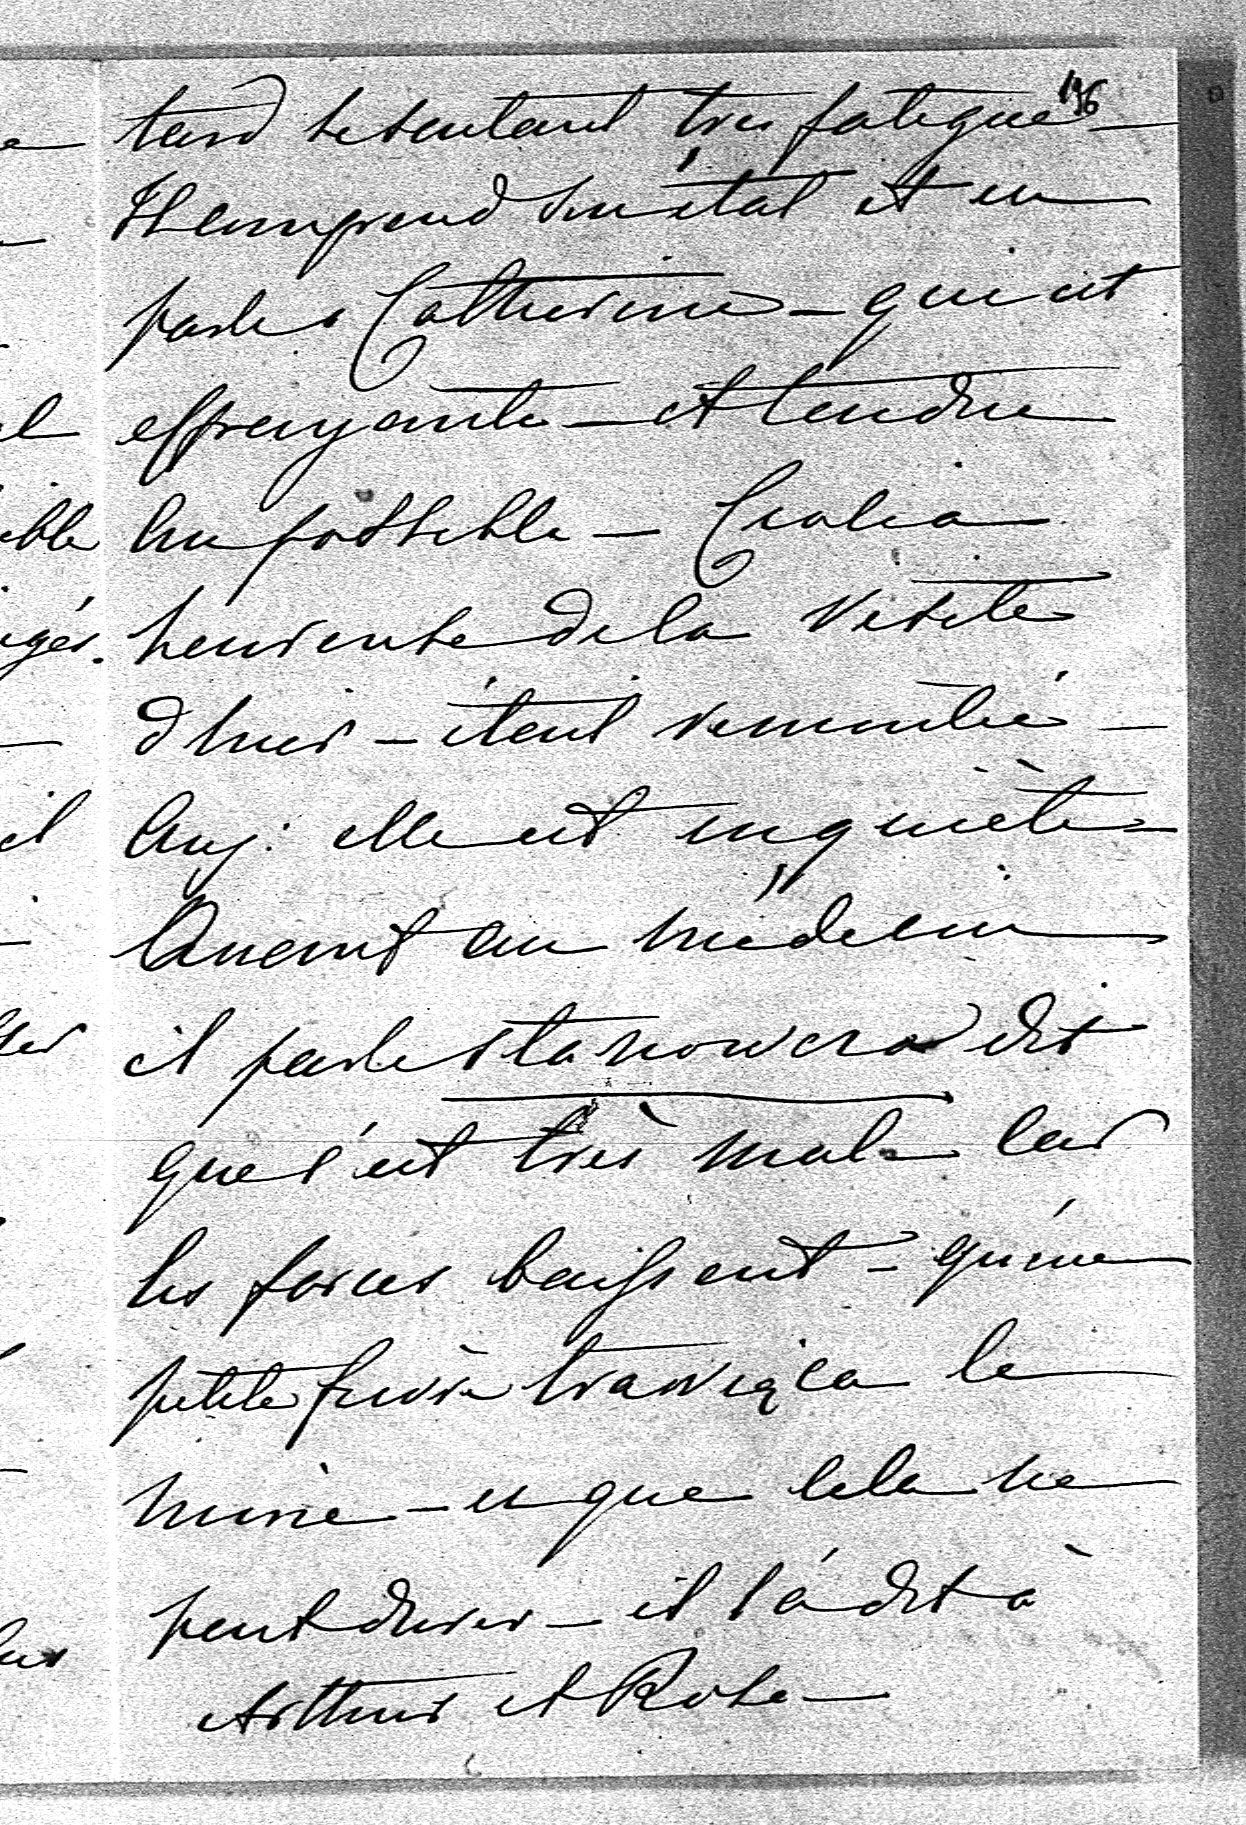 196
tard se sentant très fatigué —
Il comprend son état et en
parle a Catherine — qui est
effrayante — et tendue
au possible — Cecilia
heureuse de la visite
d'hier — étant remontée —
Auj: elle est inquiète —
Quant au médecin
il parle stanowczo dit
que c'est très mal — car
les forces baissent — qu'une
petite fièvre trawiąca le
mine — et que cela ne
peut durer — il l'a dit à
Arthur et Rose —